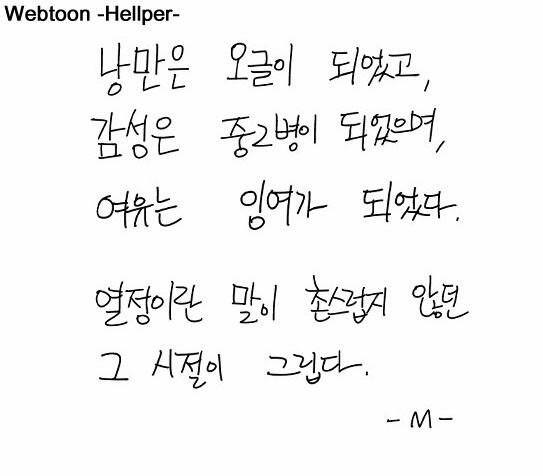 Webtoon -Hellper-
낭만은 오글이 되었고,
감성은 중2병이 되었으며,
여유는 잉여가 되었다.
열정이란 말이 촌스럽지 않던
그 시절이 그립다.
-M-